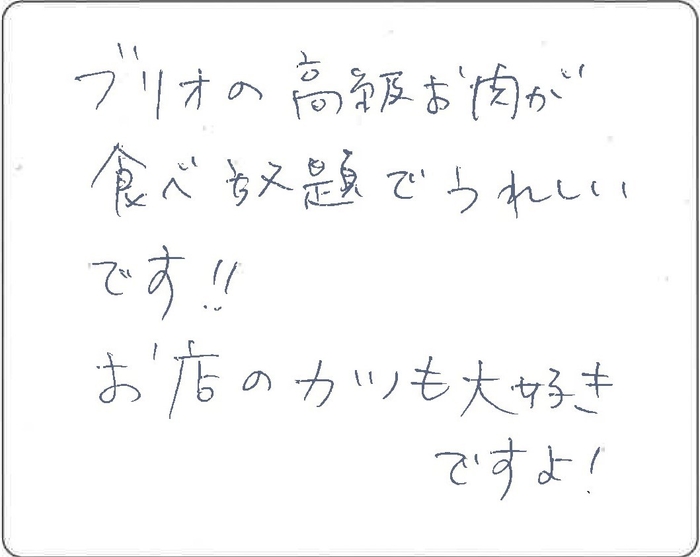 ブリオの高級お肉が
食べ放題でうれしい
です!!
お店のカツも大好き
ですよ!